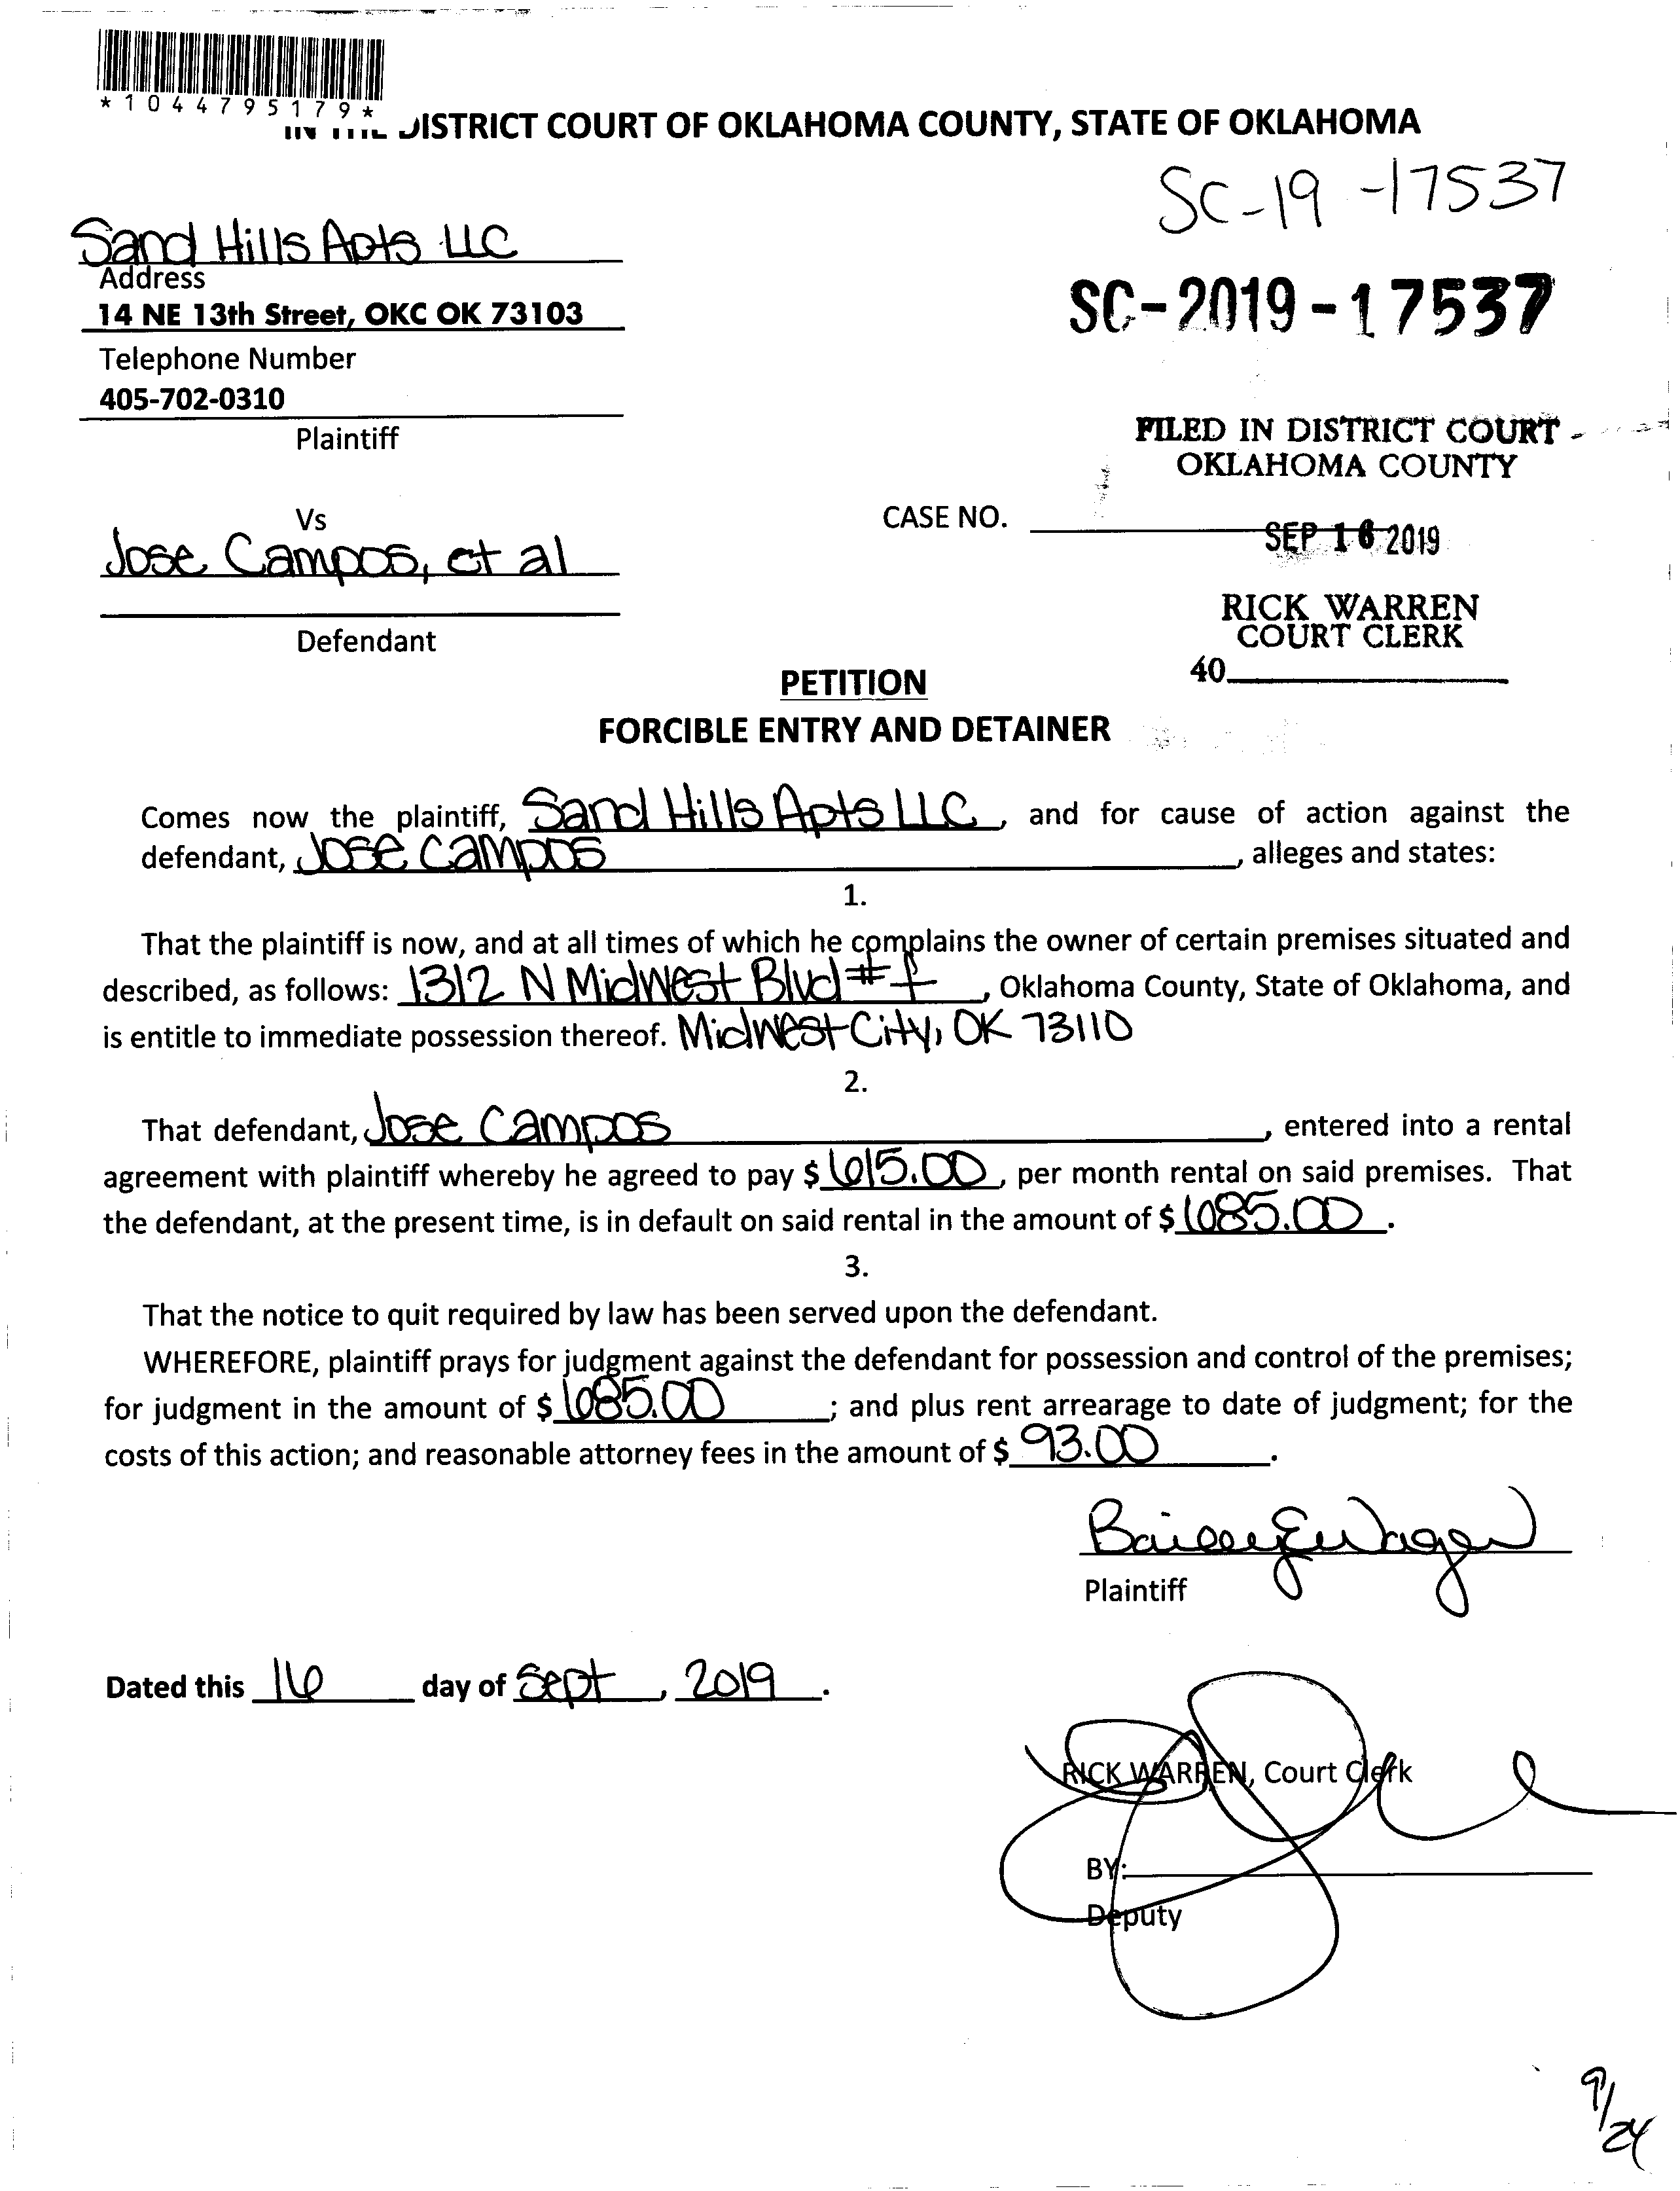 *1044795179*
IN THE DISTRICT COURT OF OKLAHOMA COUNTY, STATE OF OKLAHOMA
SC-19-17537
Sand Hills Apts LLC
Address
14 NE 13th Street, OKC OK 73103
SC-2019-17537
Telephone Number
405-702-0310
Plaintiff
FILED IN DISTRICT COURT
OKLAHOMA COUNTY
Vs
CASE NO.
SEP 16 2019
Jose Campos, et al
RICK WARREN
COURT CLERK
Defendant
40
PETITION
FORCIBLE ENTRY AND DETAINER
Comes now the plaintiff, Sand Hills Apts LLC, and for cause of action against the
defendant, Jose Campos, alleges and states:
1.
That the plaintiff is now, and at all times of which he complains the owner of certain premises situated and
described, as follows: 1312 N Midwest Blvd # f, Oklahoma County, State of Oklahoma, and
is entitle to immediate possession thereof. Midwest City, OK 73110
2.
That defendant, Jose Campos, entered into a rental
agreement with plaintiff whereby he agreed to pay $ 615.00, per month rental on said premises. That
the defendant, at the present time, is in default on said rental in the amount of $ 685.00.
3.
That the notice to quit required by law has been served upon the defendant.
WHEREFORE, plaintiff prays for judgment against the defendant for possession and control of the premises;
for judgment in the amount of $ 685.00; and plus rent arrearage to date of judgment; for the
costs of this action; and reasonable attorney fees in the amount of $ 93.00.
Plaintiff
Dated this 16 day of Sept, 2019.
RICK WARREN, Court Clerk
BY:
Deputy
9/24